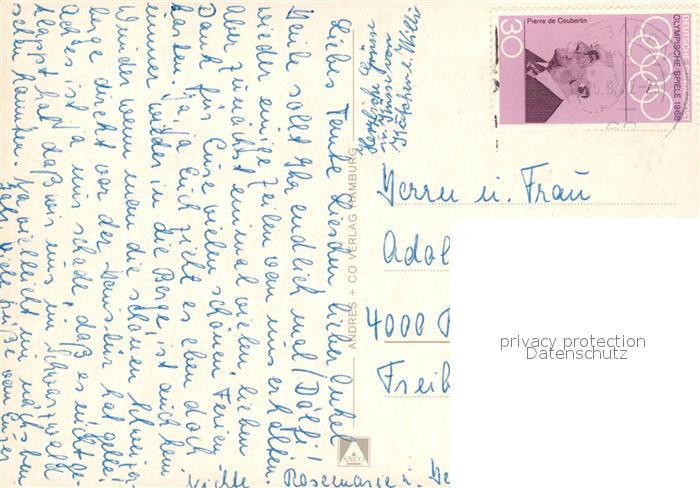 Liebes Tante Lieschen lieber Onkel
Heute sollt Ihr endlich mal (Dölfi!)
wieder einige Zeilen von uns erhalten.
Aber zunächst einmal vielen lieben
Dank für Eure vielen schönen Ferien
karten. Ja, ja Euch zieht es eben doch
immer wieder in die Berge, ist auch kein
Wunder wenn man die schönen Schweizer
berge direkt vor der Haustür hat, gelle!
Ach es ist ja uns schade, daß es nicht ge
klappt hat, daß wir uns im Schwarzwald
sehen konnten. Na vielleicht im nächsten
Jahr. Viele Grüße von Eurer
Nichte Rosemarie u.
Herzliche Grüsse
von
Kätchen u. Willi
ANDRES + CO VERLAG HAMBURG
ANCO
Pierre de Coubertin
30
DEUTSCHE BUNDESPOST
OLYMPISCHE SPIELE 1968
Herrn u. Frau
Adol
4000
Freib
privacy protection
Datenschutz